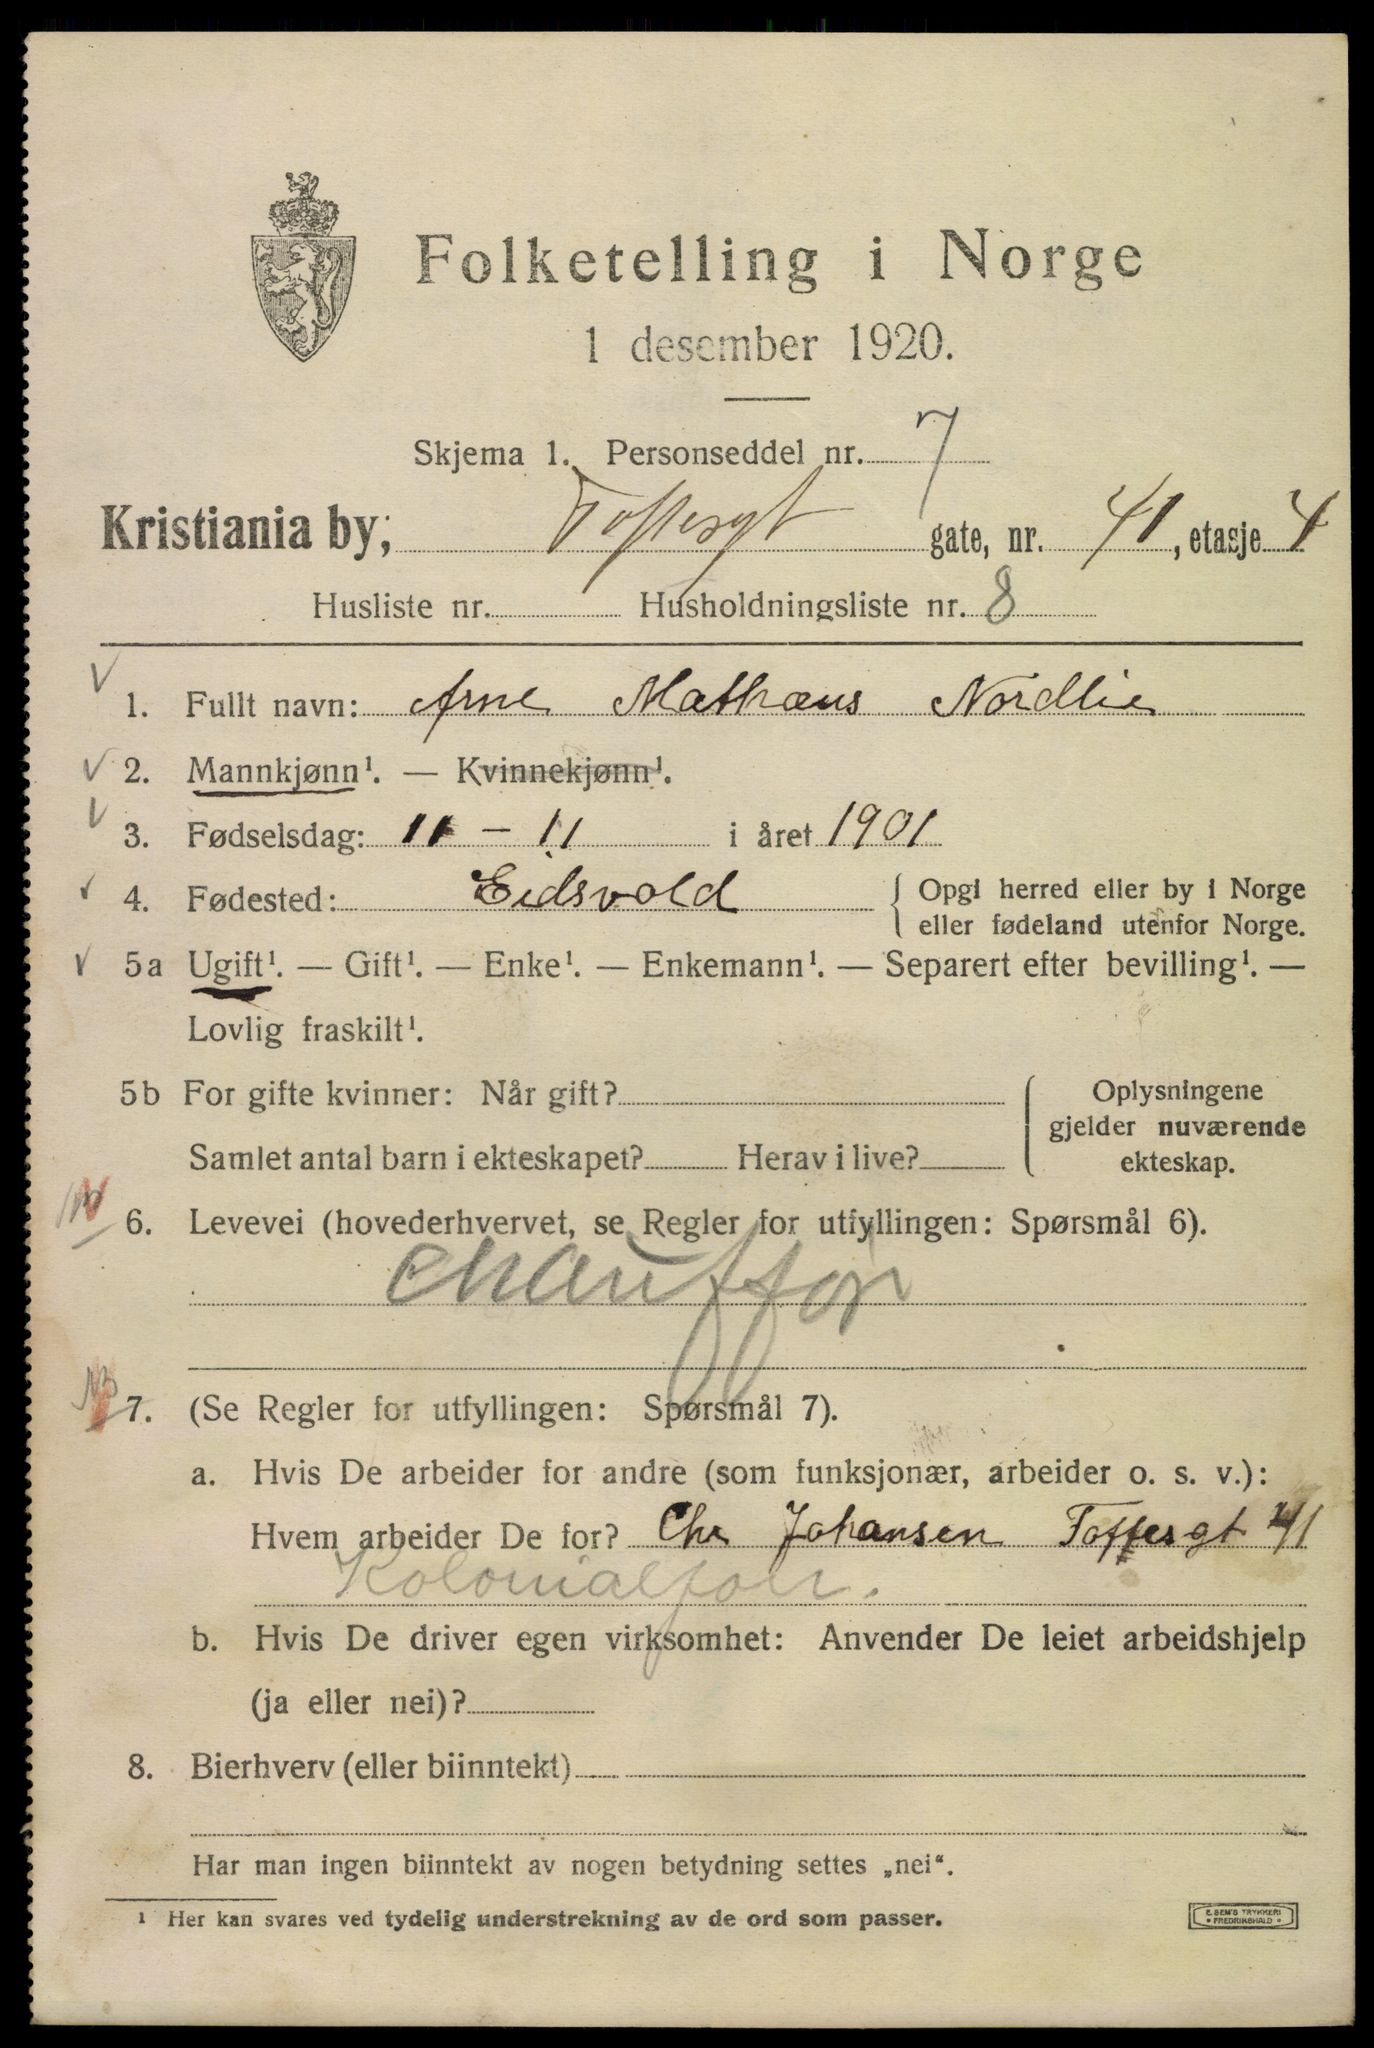 Folketelling i Norge
1 desember 1920.
Skjema 1. Personseddel nr. 7
Kristiania by, Toftesgt gate, nr. 41, etasje 4
Husliste nr. Husholdningsliste nr. 8
1. Fullt navn: Arne Mathæus Nordlie
2. Mannkjønn¹. — Kvinnekjønn¹.
3. Fødselsdag: 11 - 11 i året 1901
4. Fødested: Eidsvold { Opgi herred eller by i Norge
eller fødeland utenfor Norge.
5a Ugift¹. — Gift¹. — Enke¹. — Enkemann¹. — Separert efter bevilling¹. —
Lovlig fraskilt¹.
5b For gifte kvinner: Når gift? { Oplysningene
gjelder nuværende
Samlet antal barn i ekteskapet? Herav i live? ekteskap.
6. Levevei (hovederhvervet, se Regler for utfyllingen: Spørsmål 6).
chauffør
7. (Se Regler for utfyllingen: Spørsmål 7).
a. Hvis De arbeider for andre (som funksjonær, arbeider o. s. v.):
Hvem arbeider De for? Chr Johansen Toftesgt 41
Kolonialforr.
b. Hvis De driver egen virksomhet: Anvender De leiet arbeidshjelp
(ja eller nei)?
8. Bierhverv (eller biinntekt)
Har man ingen biinntekt av nogen betydning settes „nei“.
¹ Her kan svares ved tydelig understrekning av de ord som passer.
E. SEM'S TRYKKERI
• FREDRIKSHALD •